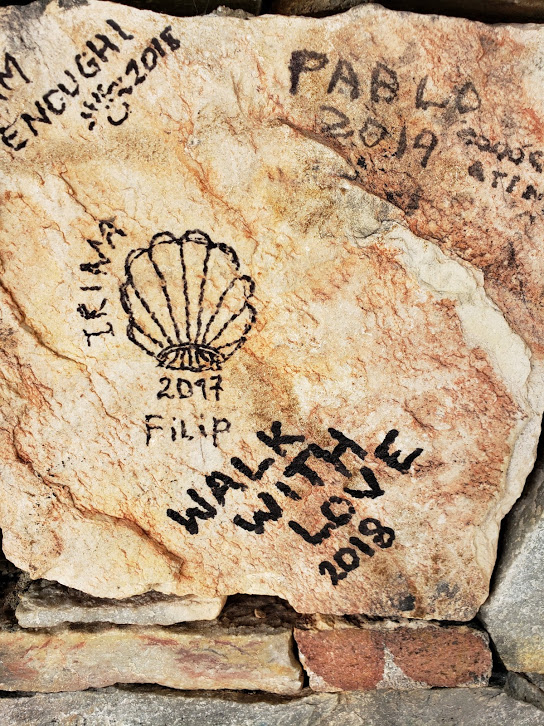 M
ENOUGH!
2018
PABLO
2019
IRINA
2017
FILIP
WALK
WITH
LOVE
2018